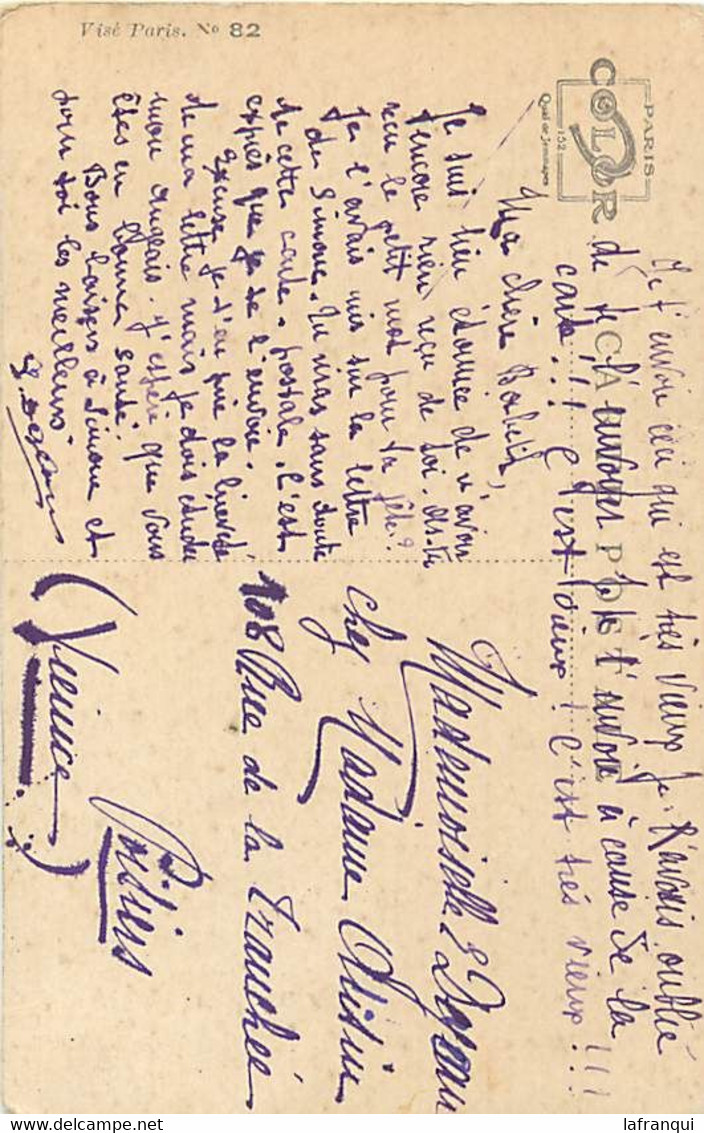 Visé Paris. N° 82
PARIS
COLOR
152
Quai de Jemmapes
CARTE POSTALE
Je t'envoie ceci qui est très vieux je l'avais oublié
de te l'envoyer je te l'envoie à cause de la
carte!!! C'est vieux! C'est très vieux!!!
Ma chère Babeth,
Je suis bien étonnée de n'avoir
encore rien reçu de toi. As-tu
reçu le petit mot pour ta fête?
Je l'avais mis sur la lettre
de Simone. Tu riras sans doute
de cette carte postale. C'est
exprès que je te l'envoie.
Excuse je t'en prie la brièveté
de ma lettre mais je dois étudier
mon anglais. J'espère que vous
êtes en bonne santé.
Bons baisers à Simone et
pour toi les meilleurs.
Mademoiselle E
chez Madame
108 Rue de la Tranchée
Poitiers
(Vienne)
lafranqui